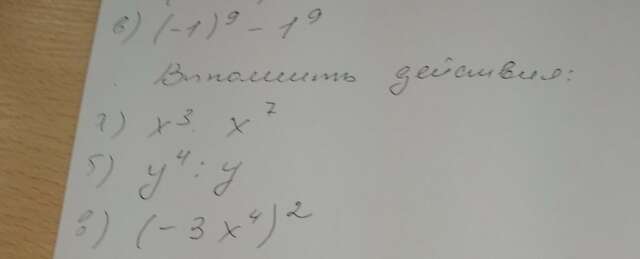 в) (-1)⁹ - 1⁹
Выполнить действия:
а) x³ · x⁷
б) y⁴ : y
в) (-3x⁴)²